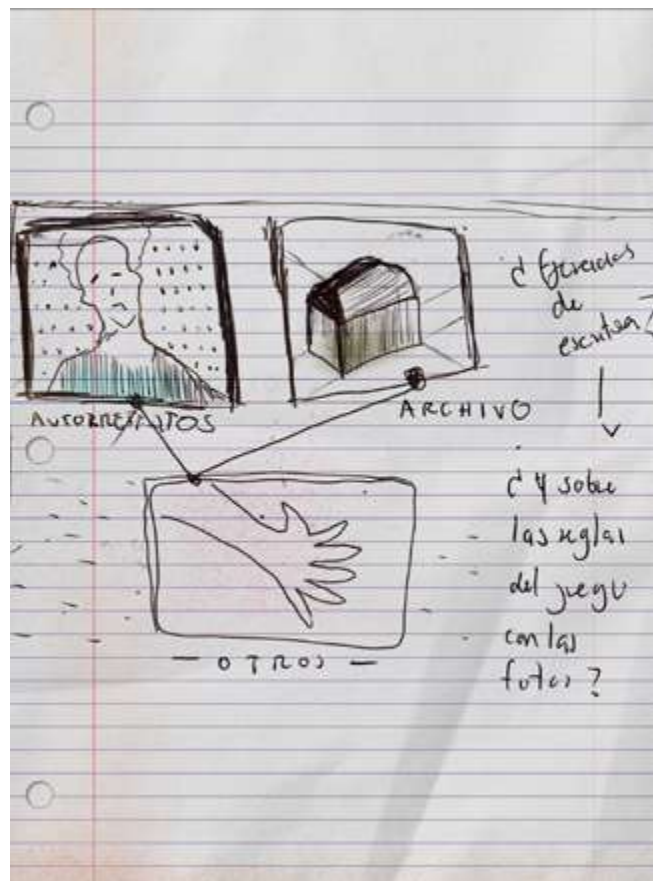 AUTORRETRATOS
ARCHIVO
¿Ejercicios
de
escritura
¿Y sobre
las reglas
del juego
con las
fotos?
— OTROS —